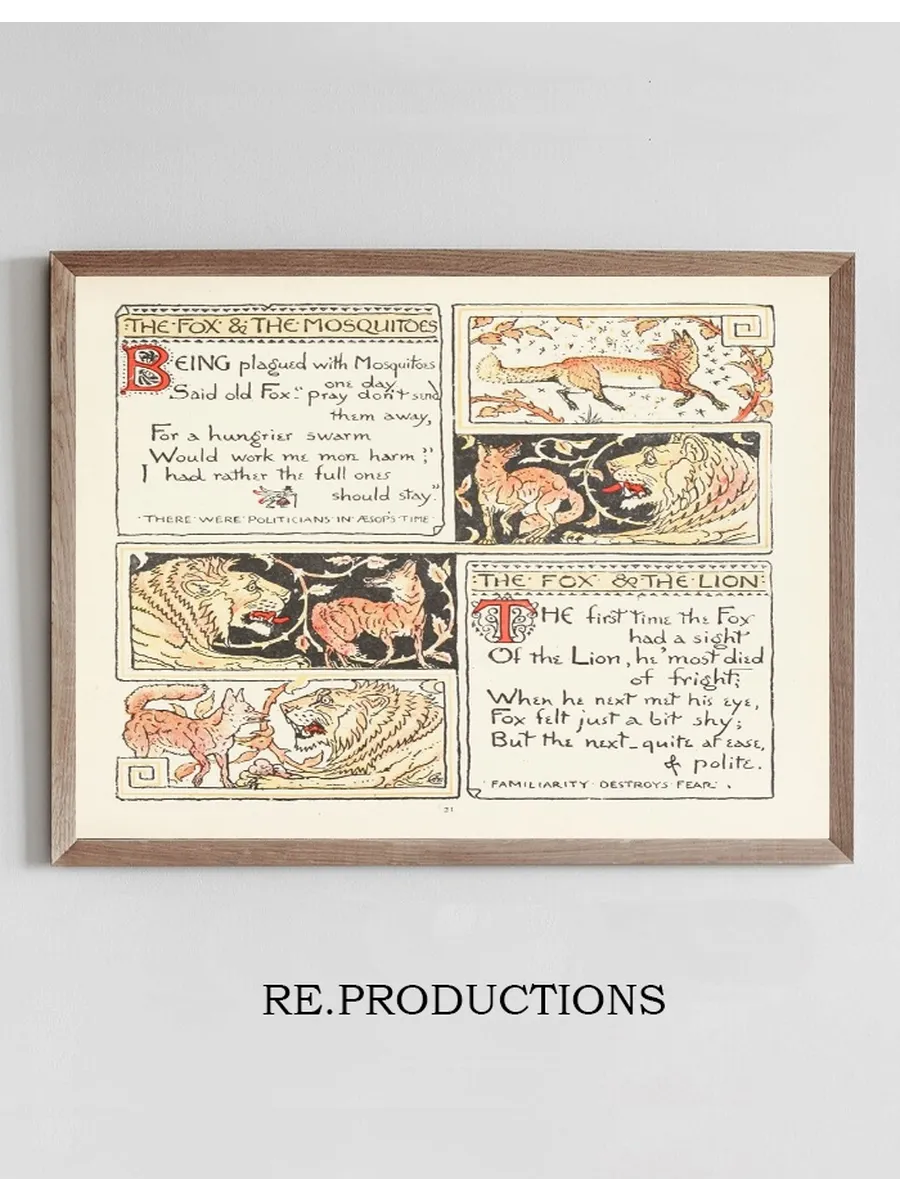 THE · FOX · & · THE · MOSQUITOES
BEING plagued with Mosquitoes
one day,
Said old Fox: "pray don't send
them away,
For a hungrier swarm
Would work me more harm;"
I had rather the full ones
should stay."
· THERE · WERE · POLITICIANS · IN · ÆSOP'S · TIME ·
THE · FOX · & · THE · LION
THE first time the Fox
had a sight
Of the Lion, he 'most died
of fright;
When he next met his eye,
Fox felt just a bit shy;
But the next _ quite at ease,
& polite.
· FAMILIARITY · DESTROYS · FEAR ·
31
RE.PRODUCTIONS